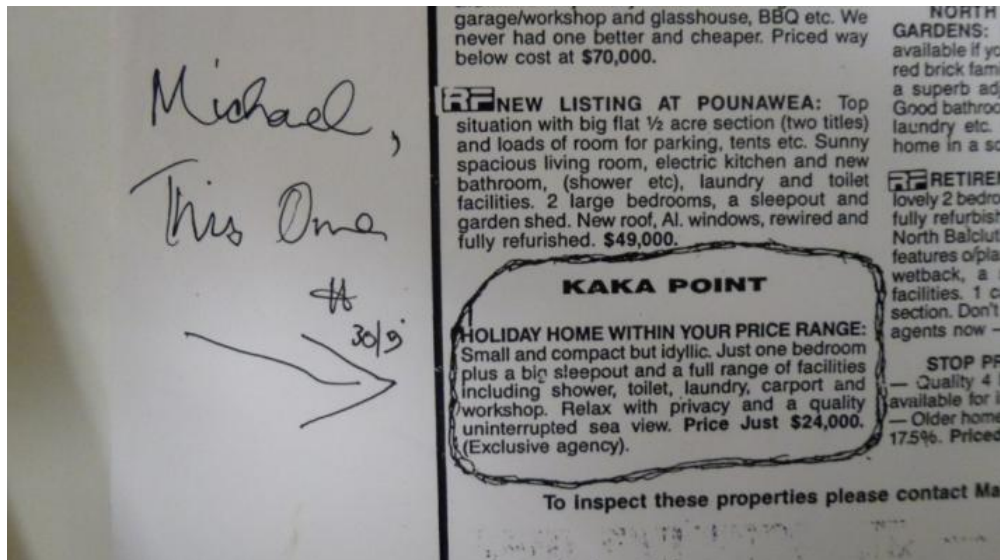 Michael,
This One
30/9
garage/workshop and glasshouse, BBQ etc. We
never had one better and cheaper. Priced way
below cost at $70,000.
RF NEW LISTING AT POUNAWEA: Top
situation with big flat ½ acre section (two titles)
and loads of room for parking, tents etc. Sunny
spacious living room, electric kitchen and new
bathroom, (shower etc), laundry and toilet
facilities. 2 large bedrooms, a sleepout and
garden shed. New roof, Al. windows, rewired and
fully refurished. $49,000.
KAKA POINT
HOLIDAY HOME WITHIN YOUR PRICE RANGE:
Small and compact but idyllic. Just one bedroom
plus a big sleepout and a full range of facilities
including shower, toilet, laundry, carport and
workshop. Relax with privacy and a quality
uninterrupted sea view. Price Just $24,000.
(Exclusive agency).
To inspect these properties please contact
NORTH
GARDENS:
available if
red brick
a superb
Good
laundry etc.
home in a
RF
lovely 2
fully
North
features
wetback, a
facilities. 1
section. Don't
agents now –
STOP
— Quality 4
available for
— Older
17.5%.